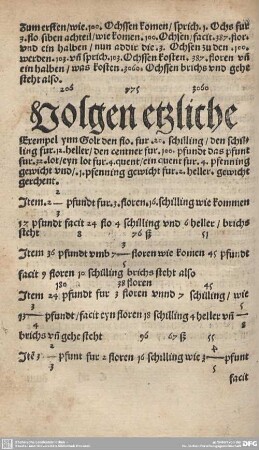 Zum ersten/wie .100. Ochssen komen/sprich .1. Ochs fur
3. flo siben achteil/wie komen .100. Ochsen/facit .387. flor.
vnd ein halben/nun addir die .3. Ochsen zu den .100.
werden .103. vñ sprich .103. Ochssen kosten .387. floren vñ
ein halben/was kosten .3060. Ochssen brichs vnd gehe
steht also.
206 775 3060
Volgen etzliche
Exempel ynn Golt den flo. fur .20. schilling/den schil-
ling fur .12. heller/den centner fur .100. pfundt das pfunt
fur .32. lot/eyn lot fur .4. quent/ein quent fur .4. pfenning
gewicht vnd/.1. pfenning gewicht fur .2. heller. gewicht
gerechent.
2
Item .2— pfundt fur .3. floren .16. schilling wie kommen
3
17 pfundt facit 24 flo 4 schilling vnd 6 heller/brichs
steht 8 76 ß 51
Item 36 pfundt vmb 7— floren wie komen 45 pfundt
facit 9 floren 10 schilling brichs steht also
180 38 floren 45
Item 24 pfundt fur 3 floren vnnd 7 schilling/wie
13— pfundt/facit eyn floren 18 schilling 4 heller vñ—
brichs vñ gehe steht 96 67 ß 55
Itẽ 3— pfunt fur 2 floren 16 schilling wie 3— pfunt
facit